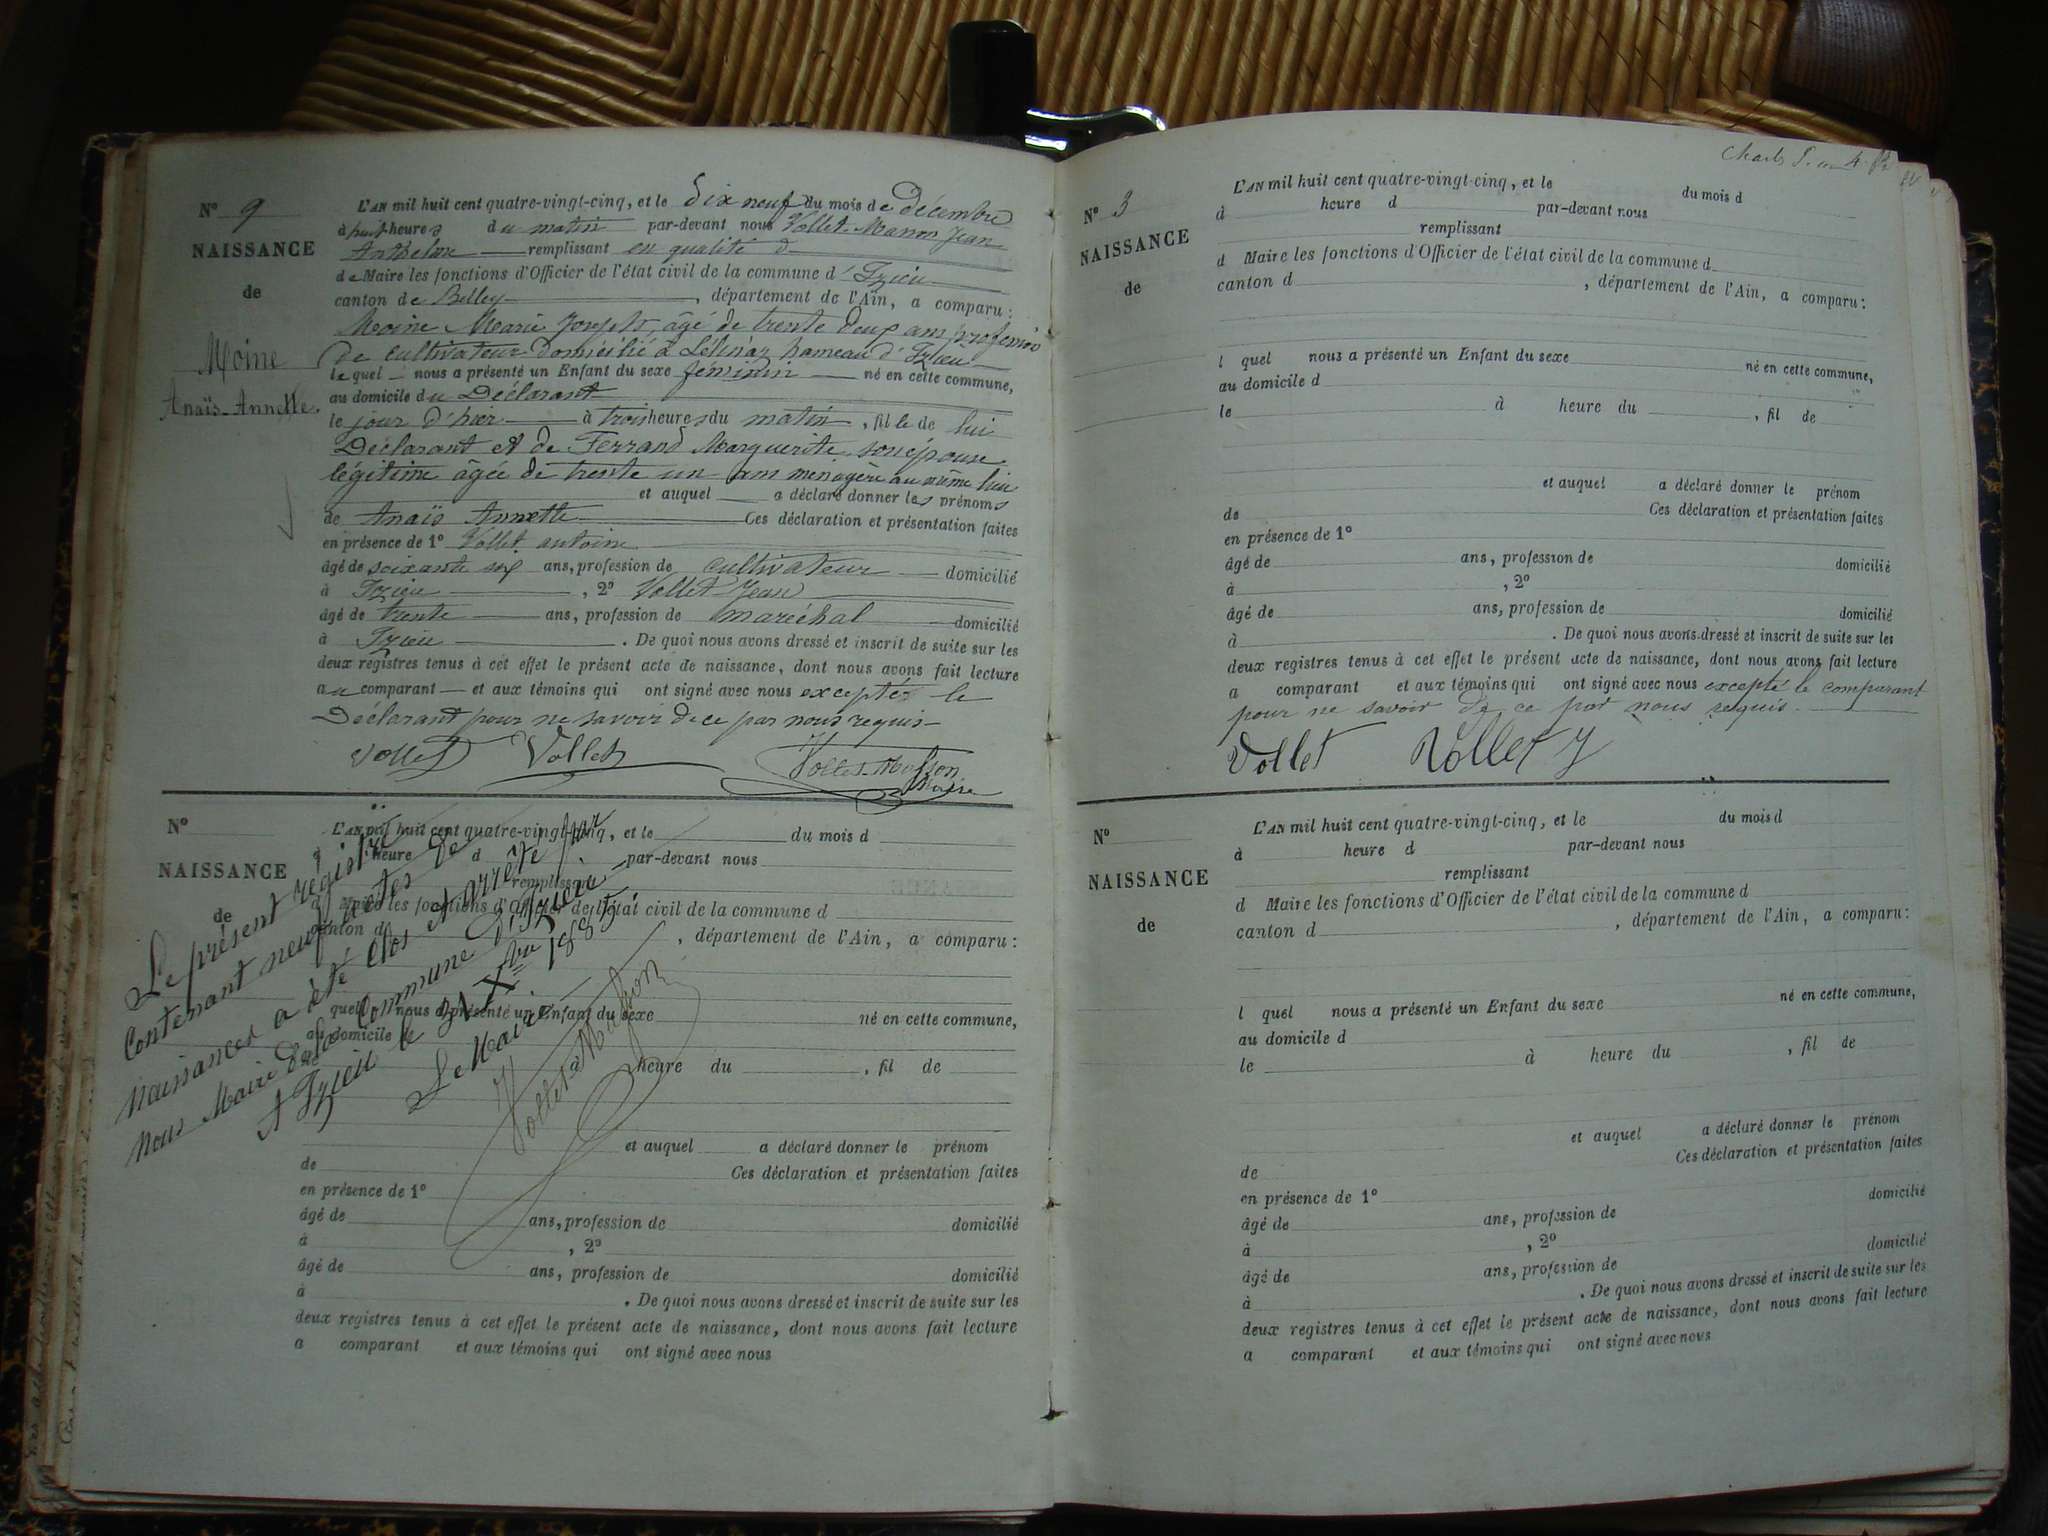 N° 9
NAISSANCE
de
Moine
Anaïs-Annette.
L'AN mil huit cent quatre-vingt-cinq, et le Dix neuf du mois de décembre
à huit heures du matin par-devant nous Vollet-Masson Jean
Anthelme remplissant en qualité d
de Maire les fonctions d'Officier de l'état civil de la commune d'Izieu
canton de Belley, département de l'Ain, a comparu :
Moine Marie Joseph, âgé de trente deux ans profession
de cultivateur domicilié à Lélinaz hameau d'Izieu
lequel nous a présenté un Enfant du sexe féminin né en cette commune,
au domicile du Déclarant
le jour d'hier à trois heures du matin, fille de lui
Déclarant et de Ferrand Marguerite son épouse
légitime âgée de trente un ans ménagère au même lieu
et auquel a déclaré donner les prénoms
de Anaïs Annette Ces déclaration et présentation faites
en présence de 1° Vollet antoine
âgé de soixante six ans, profession de cultivateur domicilié
à Izieu, 2° Vollet Jean
âgé de trente ans, profession de maréchal domicilié
à Izieu. De quoi nous avons dressé et inscrit de suite sur les
deux registres tenus à cet effet le présent acte de naissance, dont nous avons fait lecture
au comparant et aux témoins qui ont signé avec nous excepté le
Déclarant pour ne savoir de ce par nous requis
Vollet Vollet Vollet-Masson
Maire
N°
NAISSANCE
de
L'AN mil huit cent quatre-vingt-cinq, et le du mois d
à heure d par-devant nous
remplissant
d Maire les fonctions d'Officier de l'état civil de la commune d
canton d , département de l'Ain, a comparu :
l quel nous a présenté un Enfant du sexe né en cette commune,
au domicile d
le à heure du , fil de
et auquel a déclaré donner le prénom
de Ces déclaration et présentation faites
en présence de 1°
âgé de ans, profession de domicilié
à , 2°
âgé de ans, profession de domicilié
à . De quoi nous avons dressé et inscrit de suite sur les
deux registres tenus à cet effet le présent acte de naissance, dont nous avons fait lecture
a comparant et aux témoins qui ont signé avec nous
Le présent régistre
Contenant neuf actes de
naissances a été clos et arrêté par
nous Maire de la Commune d'Izieu
A Izieu le 31 Xbre 1885
Le Maire
Vollet-Masson
N° 3
NAISSANCE
de
L'AN mil huit cent quatre-vingt-cinq, et le du mois d
à heure d par-devant nous
remplissant
d Maire les fonctions d'Officier de l'état civil de la commune d
canton d , département de l'Ain, a comparu :
l quel nous a présenté un Enfant du sexe né en cette commune,
au domicile d
le à heure du , fil de
et auquel a déclaré donner le prénom
de Ces déclaration et présentation faites
en présence de 1°
âgé de ans, profession de domicilié
à , 2°
âgé de ans, profession de domicilié
à . De quoi nous avons dressé et inscrit de suite sur les
deux registres tenus à cet effet le présent acte de naissance, dont nous avons fait lecture
a comparant et aux témoins qui ont signé avec nous excepté le comparant
pour ne savoir de ce par nous requis.
Vollet Vollet J
N°
NAISSANCE
de
L'AN mil huit cent quatre-vingt-cinq, et le du mois d
à heure d par-devant nous
remplissant
d Maire les fonctions d'Officier de l'état civil de la commune d
canton d , département de l'Ain, a comparu :
l quel nous a présenté un Enfant du sexe né en cette commune,
au domicile d
le à heure du , fil de
et auquel a déclaré donner le prénom
de Ces déclaration et présentation faites
en présence de 1°
âgé de ans, profession de domicilié
à , 2°
âgé de ans, profession de domicilié
à . De quoi nous avons dressé et inscrit de suite sur les
deux registres tenus à cet effet le présent acte de naissance, dont nous avons fait lecture
a comparant et aux témoins qui ont signé avec nous